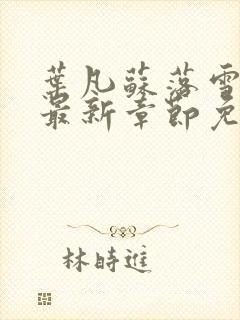 葉凡蘇落雪
最新章節免
林時進